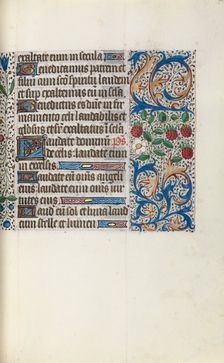 exaltate eum in secula
Benedicamus patrem et
filium cum sco spiritu laudem
et sup exaltemus eum in
Benedictus es dne in fir
mamento celi et laudabilis et
gliosus et in secula
Laudate dominum ps
de celis laudate eum
in excelsis
Laudate eum oms angeli
eius laudate eum oms uir
tutes eius
Laudate eum sol et luna lauda
eum stelle et lumen